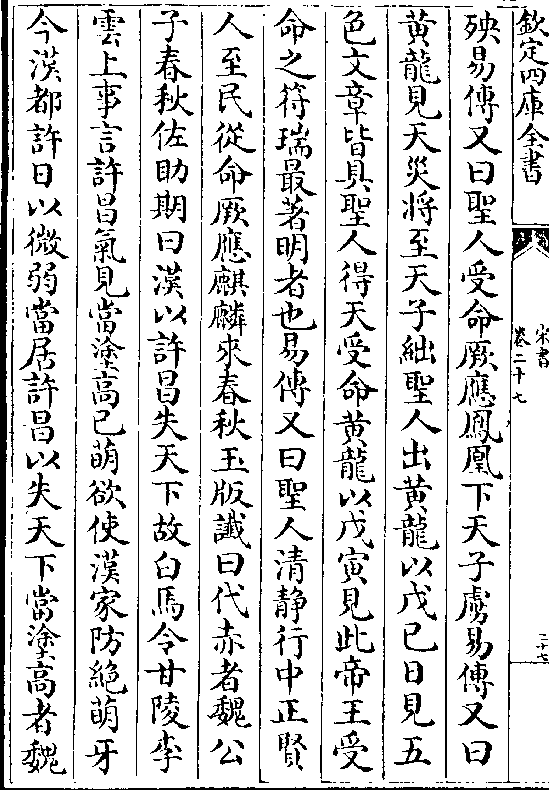 欽定四庫全書
宋書
卷二十七
三十七
殃易傳又曰聖人受命厥應鳳凰下天子虜易傳又曰
黃龍見天災將至天子絀聖人出黃龍以戊己日見五
色文章皆具聖人得天受命黃龍以戊寅見此帝王受
命之符瑞最著明者也易傳又曰聖人清靜行中正賢
人至民從命厥應麒麟來春秋玉版讖曰代赤者魏公
子春秋佐助期曰漢以許昌失天下故白馬令甘陵李
雲上事言許昌氣見當塗高已萌欲使漢家防絕萌牙
今漢都許日以微弱當居許昌以失天下當塗高者魏